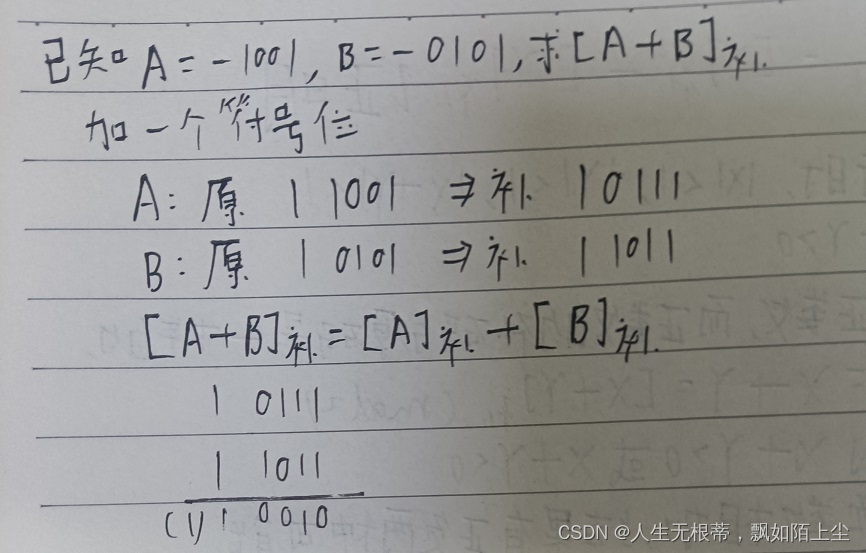 已知 A=-1001, B=-0101,求[A+B]补.
加一个"符号位
A: 原 1 1001 ⇒ 补. 1 0111
B: 原 1 0101 ⇒ 补. 1 1011
[A+B]补.=[A]补.+[B]补.
1 0111
1 1011
(1) 1 0010
CSDN @人生无根蒂，飘如陌上尘